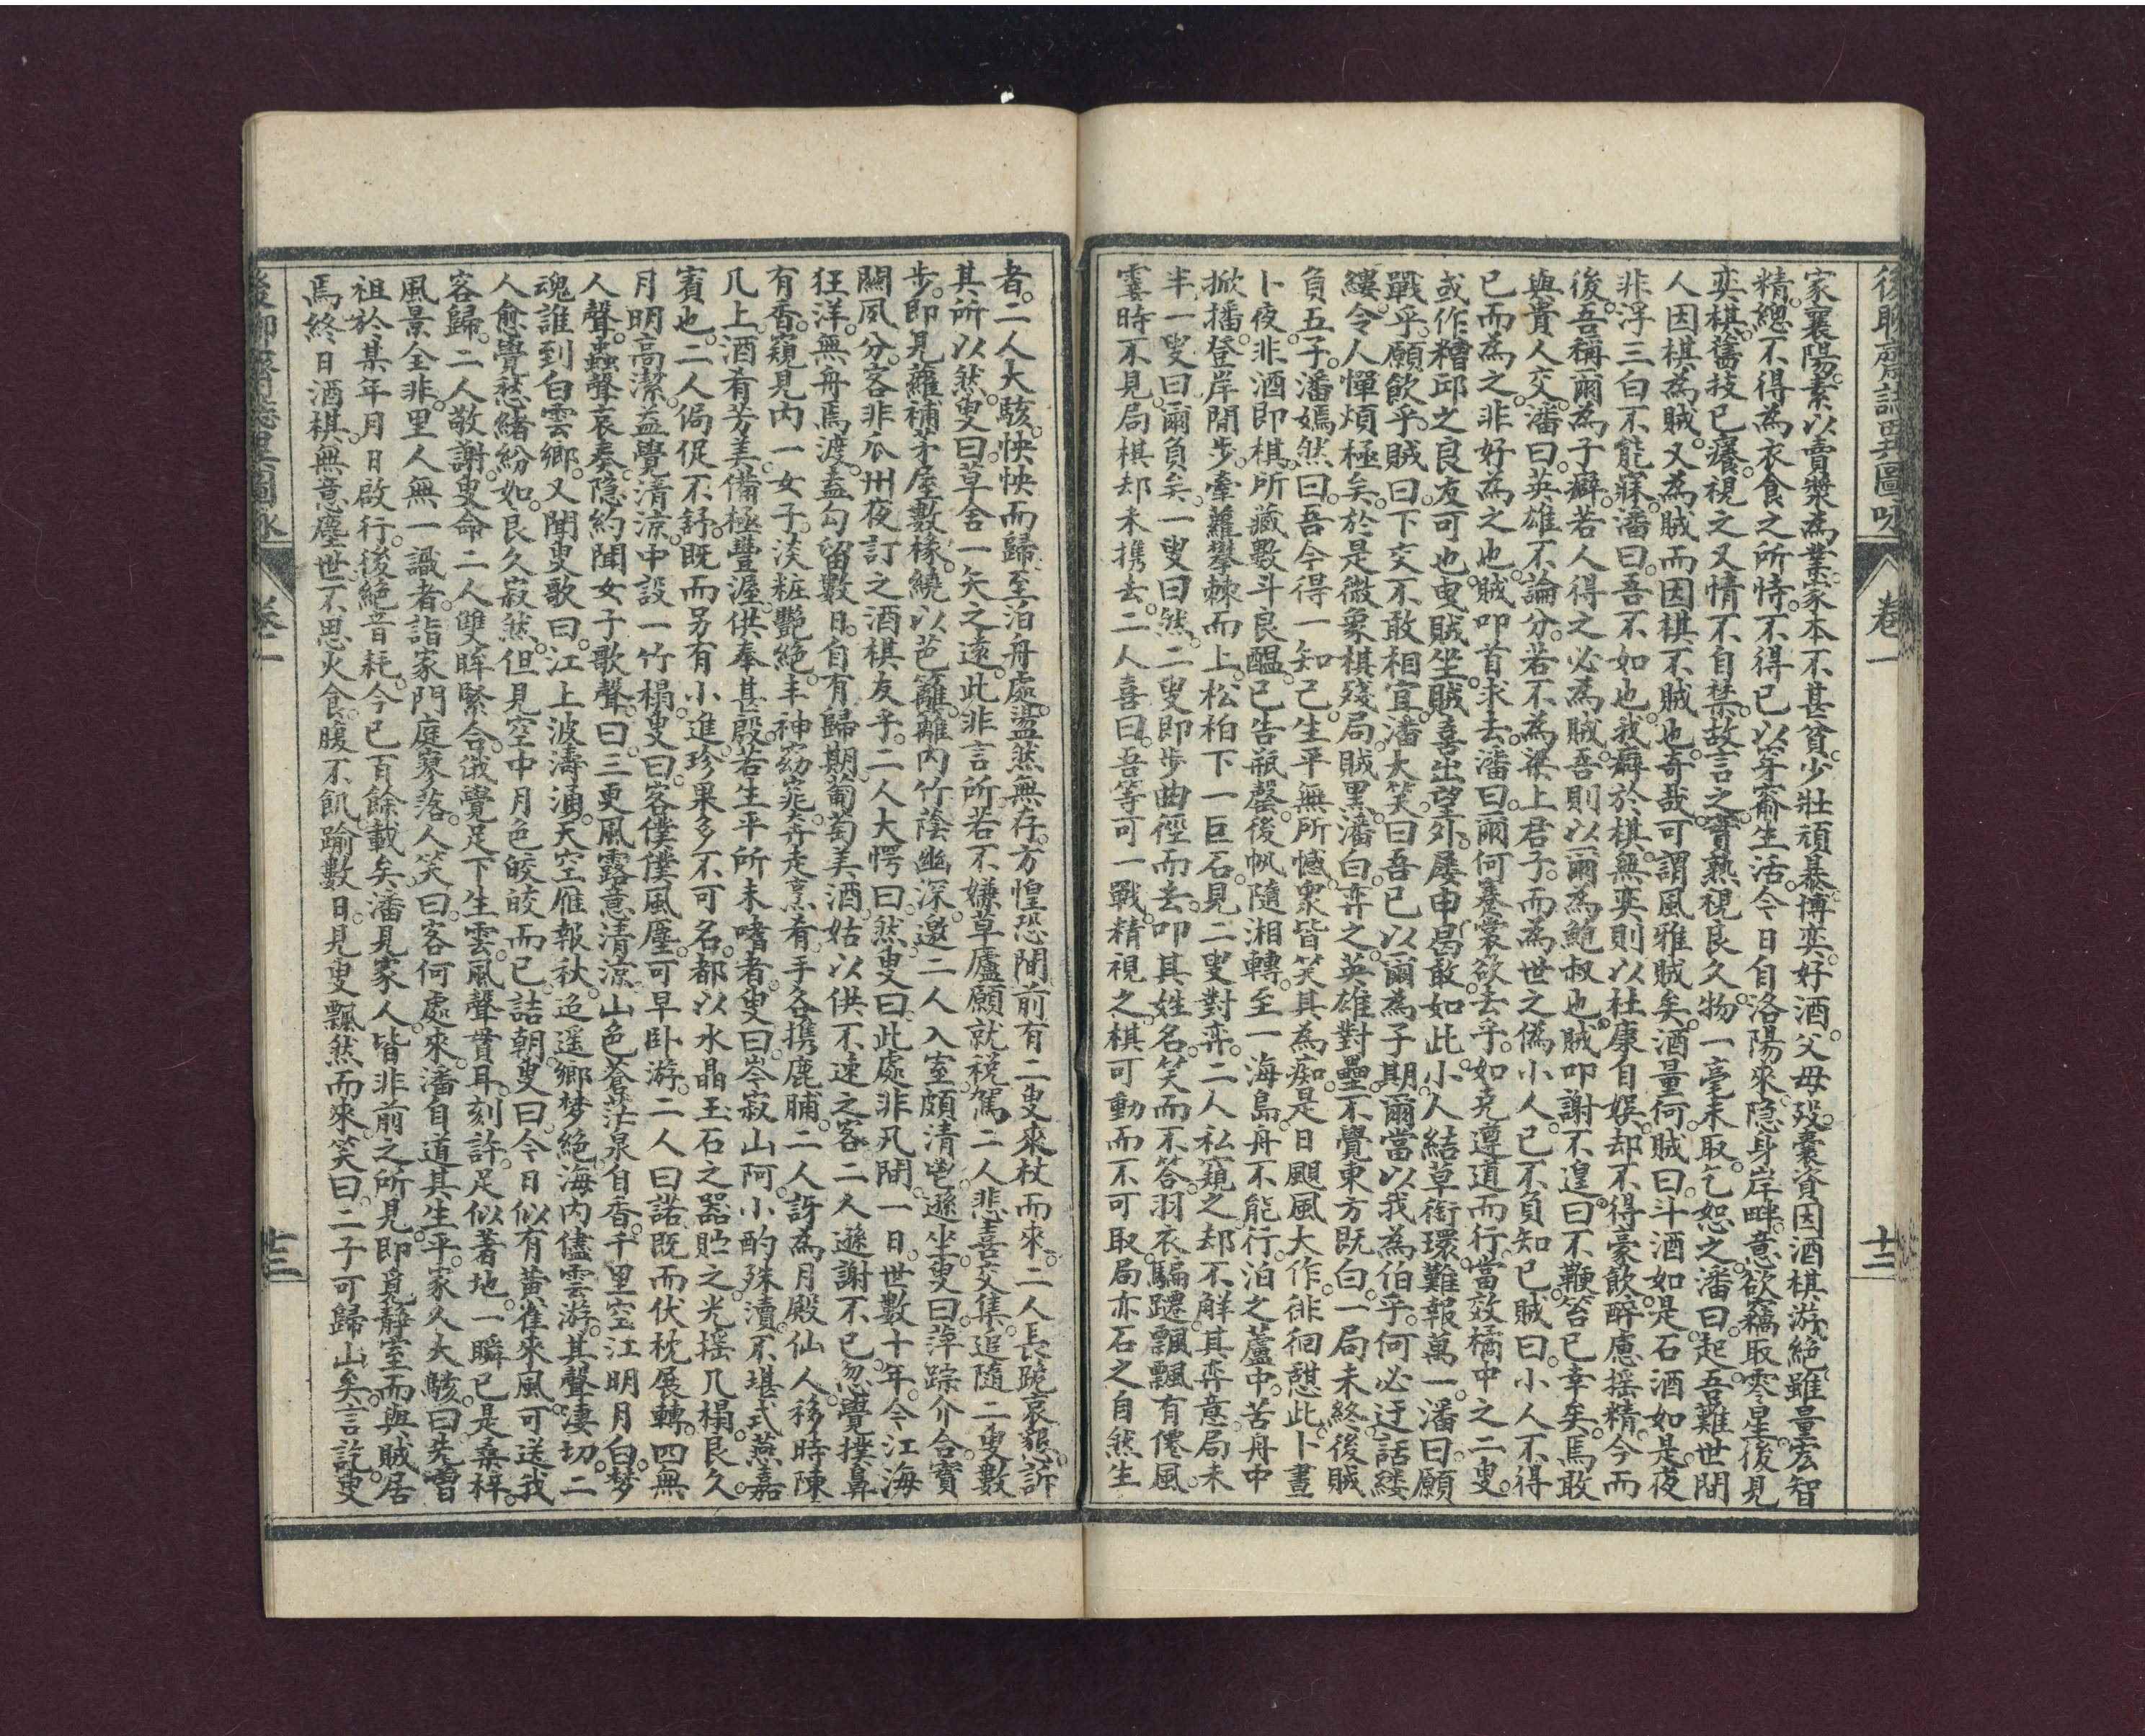 後聊齋誌異圖咏
卷一
十二
家襄陽。素以賣漿為業。家本不甚貧。少壯頑暴博奕。好酒。父母歿。囊貲因酒棋游絕。雖量宏智
精。總不得為衣食之所恃。不得已。以穿窬生活。今日自洛陽來。隱身岸畔。意欲竊取零星。後見
奕棋。舊技已癢。視之又情不自禁。故言之。實熟視良久。物一毫未取。乞恕之。潘曰。起。吾難世間
人因棋為賊。又為賊而因棋不賊也。奇哉。可謂風雅賊矣。酒量何。賊曰。斗酒如是。石酒如是。夜
非浮三白不能寐。潘曰。吾不如也。我癖於棋。無奕則以杜康自娛。却不得豪飲。醉慮搖精。今而
後。吾稱爾為子癖。若人得之必為賊。吾則以爾為鮑叔也。賊叩謝不遑曰。不鞭笞已幸矣。焉敢
與貴人交。潘曰。英雄不論分。若不為梁上君子。而為世之偽小人。已不負知己。賊曰。小人不得
已而為之。非好為之也。賊叩首求去。潘曰。爾何褰裳欲去乎。如堯遵道而行。當效橘中之二叟。
或作糟邱之良友可也。曳賊坐。賊喜出望外。屢申曷敢如此。小人結草銜環。難報萬一。潘曰。願
戰乎。願飲乎。賊曰。下交不敢相宜。潘大笑曰。吾已以爾為子期。爾當以我為伯乎。何必迂話縷
縷。令人憚煩極矣。於是微象棋殘局。賊黑潘白。弈之。英雄對壘。不覺東方既白。一局未終。後賊
負五子。潘嫣然曰。吾今得一知己。生平無所憾。衆皆笑其為痴。是日颶風大作。徘徊憇此。卜晝
卜夜。非酒即棋。所藏數斗良醞。已告瓶罄。後帆隨湘轉。至一海島。舟不能行。泊之蘆中。苦舟中
掀播。登岸閒步。牽蘿攀棘而上。松柏下一巨石。見二叟對弈。二人私窺之。却不解其弈意。局未
半。一叟曰。爾負矣。一叟曰。然。二叟即步曲徑而去。叩其姓名。笑而不答。羽衣騙躚。飄飄有僊風。
霎時不見。局棋却未携去。二人喜曰。吾等可一戰。精視之。棋可動而不可取。局亦石之自然生
者。二人大駭。怏怏而歸。至泊舟處。盪然無存。方惶恐間。前有二叟來杖而來。二人長跪哀懇。訴
其所以然。叟曰。草舍一矢之遠。此非言所。若不嫌草廬。願就稅駕。二人悲喜交集。追隨二叟。數
步。即見蘿補茅屋數椽。繞以芭籬。籬內竹陰幽深。邀二人入室。頗清。遜坐。叟曰。萍踪介合。實
關夙分。客非瓜州夜訂之酒棋友乎。二人大愕曰。然。叟曰。此處非凡間。一日。世數十年。今江海
狂洋。無舟焉渡。盍勾留數日。自有歸期。葡萄美酒。姑以供不速之客。二人遜謝不已。忽覺撲鼻
有香。窺見內一女子。淡粧艷絕。丰神窈窕。奔走烹肴。手各携鹿脯。二人訝為月殿仙人。移時陳
几上。酒肴芳美。備極豐渥。供奉甚殷。若生平所未嗜者。叟曰。岑寂山阿。小酌殊瀆。不堪式燕嘉
賓也。二人侷促不舒。既而另有小進。珍果多不可名。都以水晶玉石之器貯之。光搖几榻。良久。
月明高潔。益覺清涼。中設一竹榻。叟曰。客僕僕風塵。可早卧游。二人曰諾。既而伏枕展轉。四無
人聲。蟲聲哀奏。隱約聞女子歌聲。曰。三更風露意清涼。山色蒼茫泉自香。千里空江明月白。梦
魂誰到白雲鄉。又聞叟歌曰。江上波濤涌。天空雁報秋。迢遥鄉梦絕。海內儘雲游。其聲淒切。二
人愈覺愁緒紛如。良久寂然。但見空中月色皎皎而已。詰朝叟曰。今日似有黄雀來風。可送我
客歸。二人敬謝。叟命二人雙眸緊合。俄覺足下生雲。風聲貫耳。刻許足似著地。一瞬已是桑梓。
風景全非。里人無一識者。詣家門庭寥落。人笑曰。客何處來。潘自道其生平。家人大駭曰。先曾
祖於某年月日啟行。後絕音耗。今已百餘載矣。潘見家人皆非前之所見。即覓靜室而與賊居
焉。終日酒棋。無意塵世。不思火食。腹不飢。踰數日。見叟飄然而來。笑曰。二子可歸山矣。言訖。叟
後聊齋誌異圖咏
卷一
十三